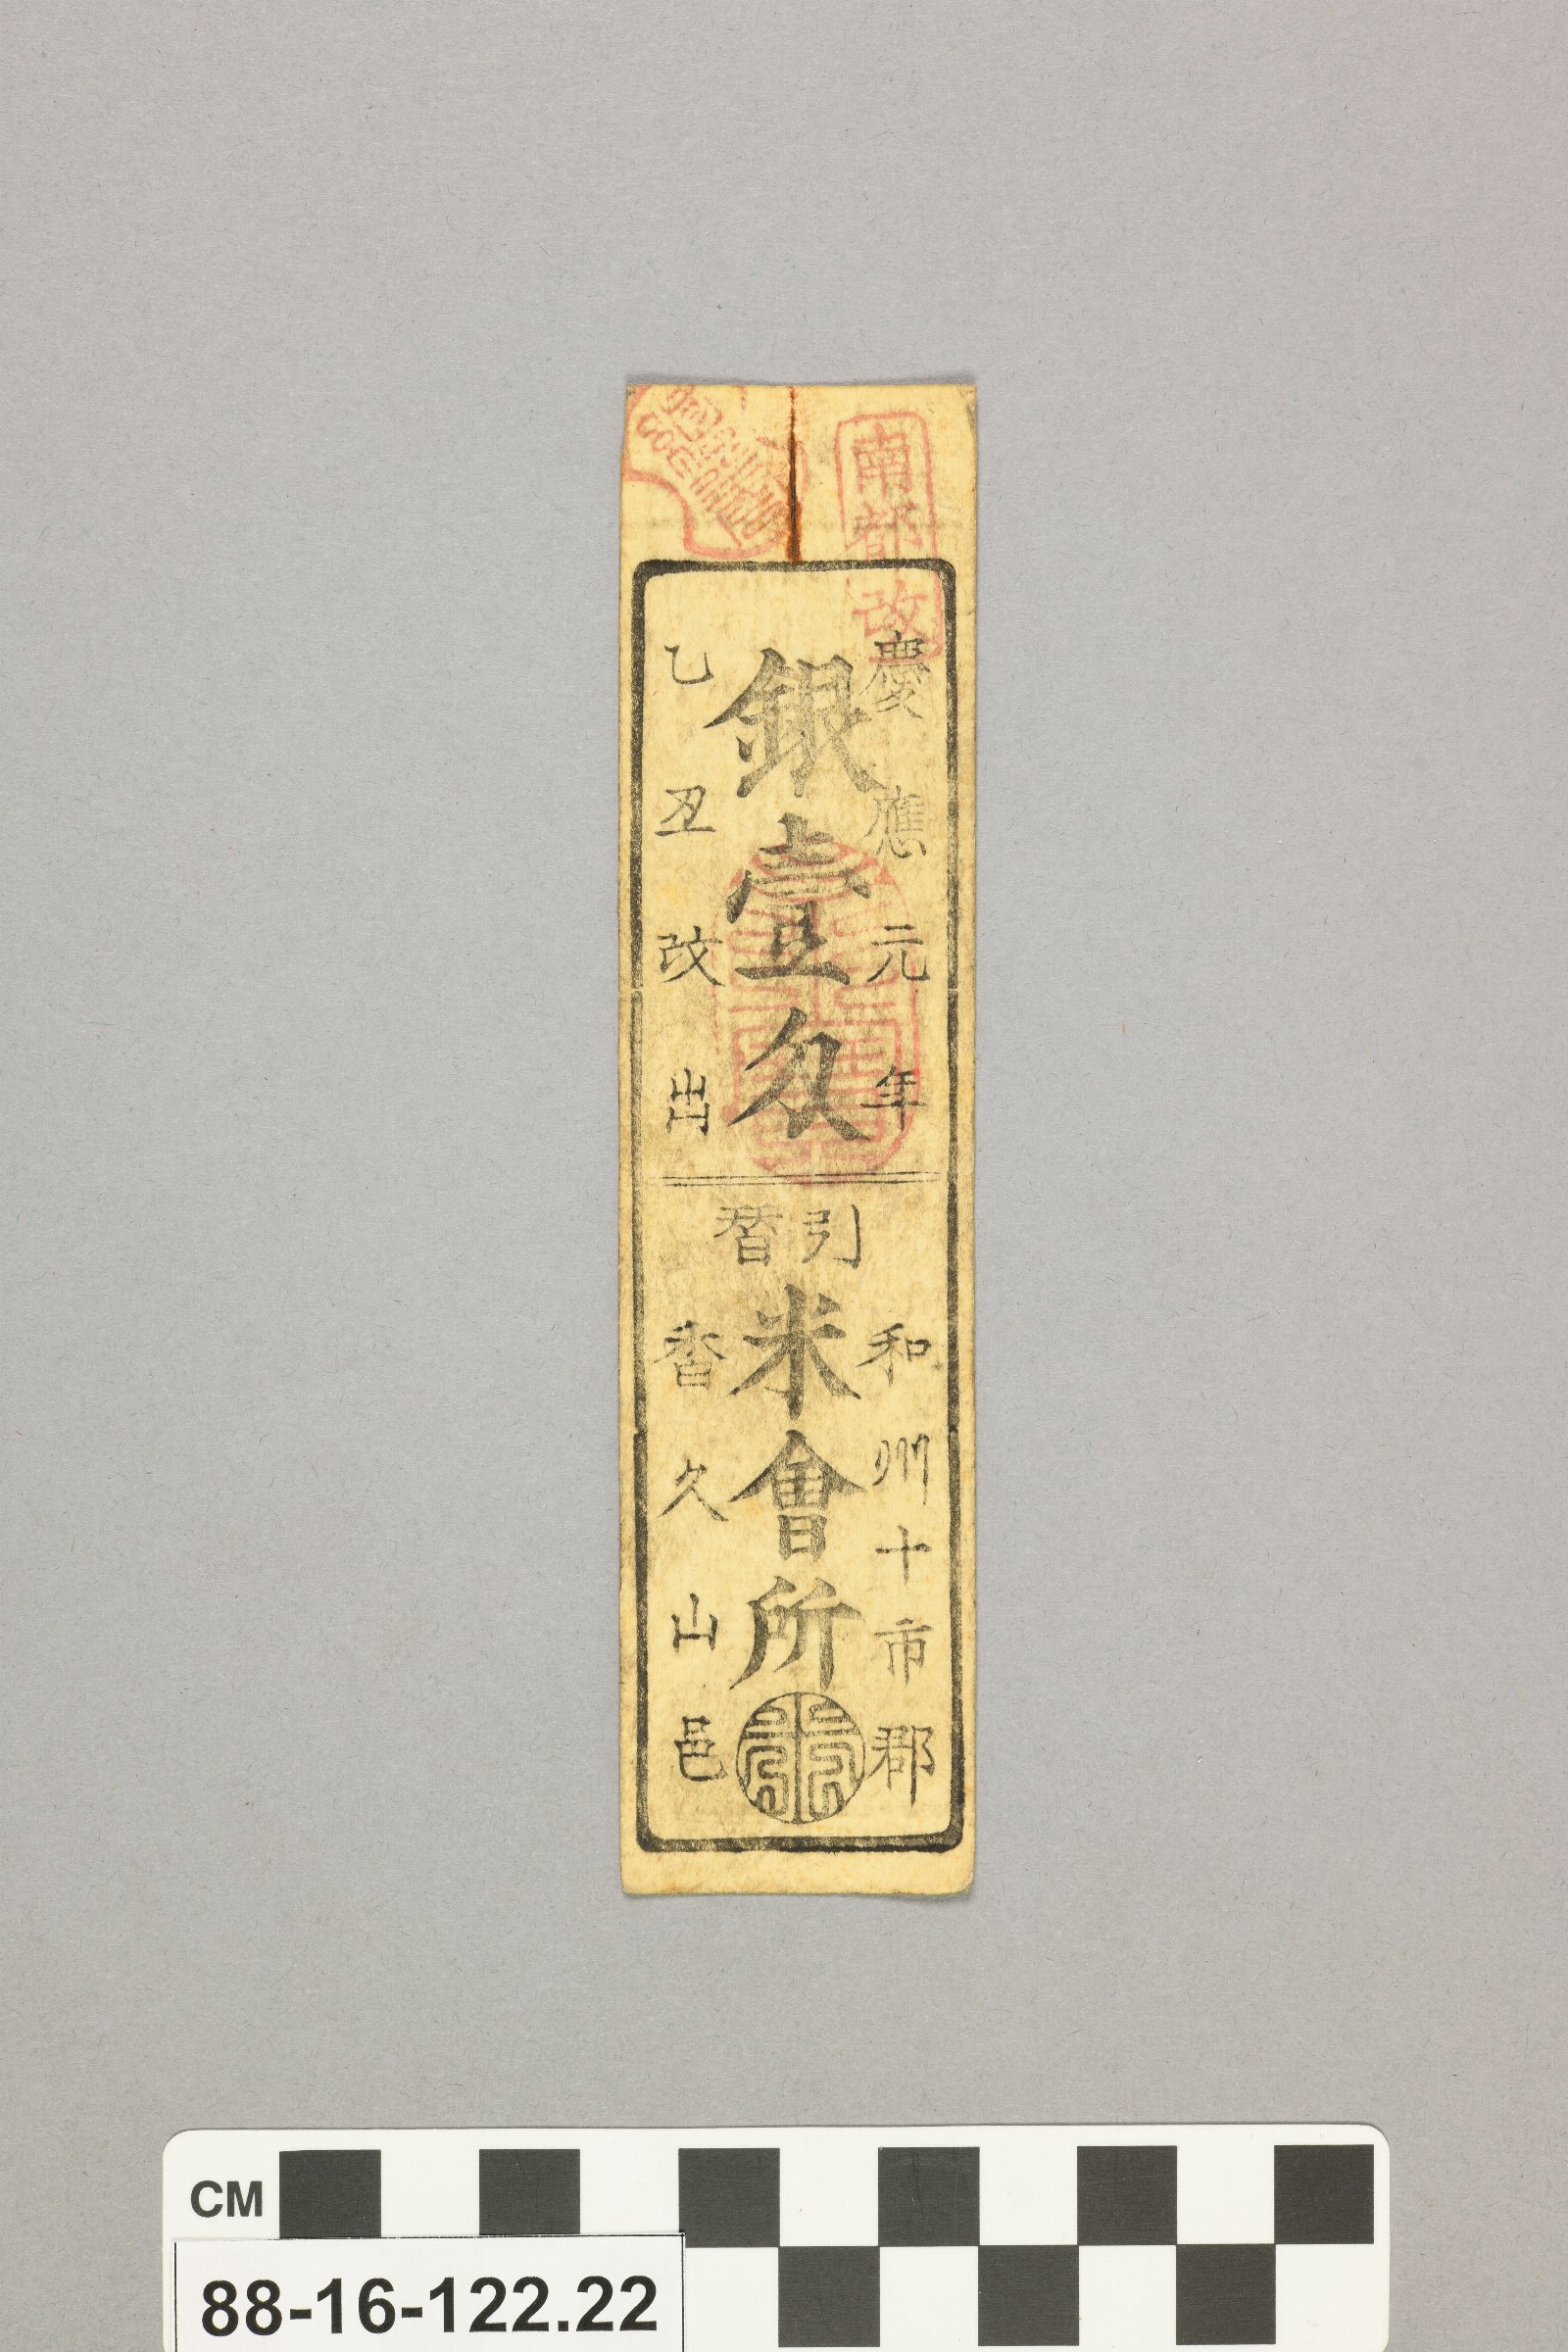 南都改
慶應元年
銀壹匁
乙丑改出
引替
和州十市郡
米會所
香久山邑
CM
88-16-122.22